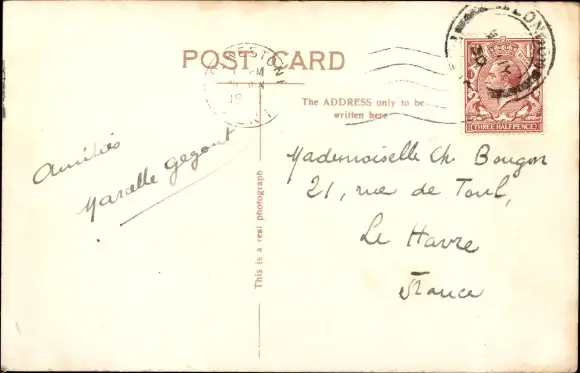 POST CARD
The ADDRESS only to be
written here
THREE HALFPENCE
LONDON
Amitiés
Marcelle Gegout
This is a real photograph
Mademoiselle Ch. Bougon
21, rue de Toul,
Le Havre
France